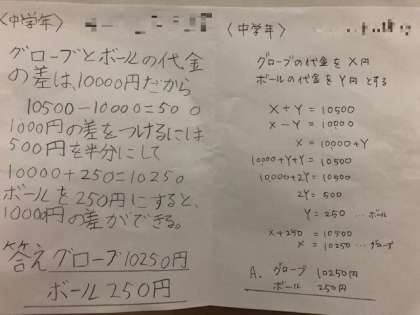 〈中学年〉
グローブとボールの代金
の差は、10000円だから
10500-10000=500
1000円の差をつけるには
500円を半分にして
10000+250=10250
ボールを250円にすると、
1000円の差ができる。
答えグローブ10250円
ボール250円
〈中学年〉
グローブの代金をX円
ボールの代金をY円とする
X+Y=10500
X-Y=10000
X=10000+Y
10000+Y+Y=10500
10000+2Y=10500
2Y=500
Y=250…ボール
X+250=10500
X=10250…グローブ
A. グローブ 10250円
ボール 250円